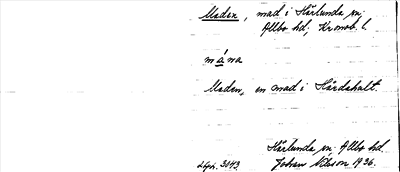 Maden, mad i Härlunda sn.
Allbo hd, Kronob. l.
måna
Maden, en mad i Hårdahult.
Härlunda sn. Allbo hd.
Johan Nilsson 1936.